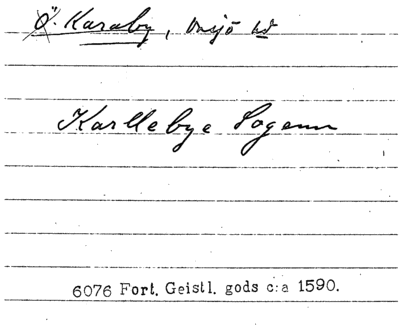 Ö. Karaby, Onsjö hd
Karllebye Sogenn
6076 Fort. Geistl. gods c:a 1590.